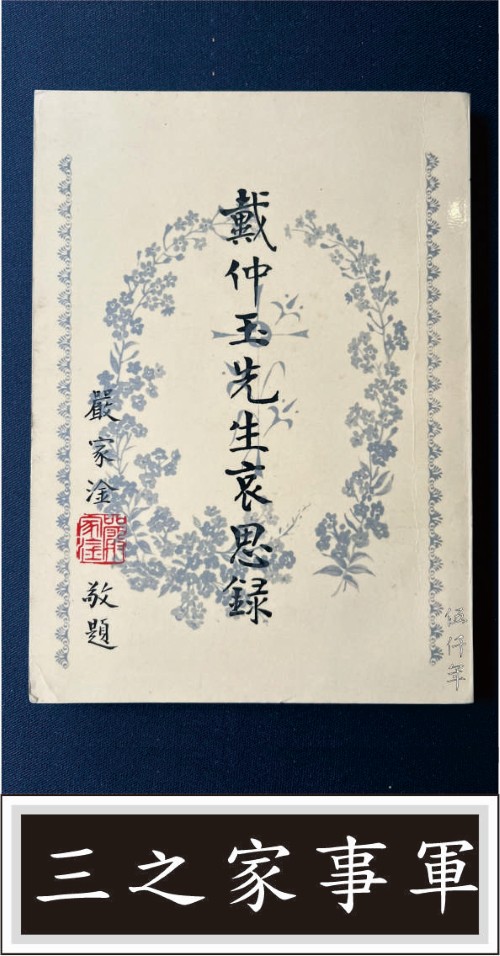 戴仲玉先生哀思録
嚴家淦
嚴家淦
敬題
伍仟年
軍事家之三